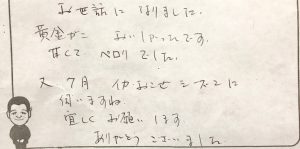 お世話になりました。
黄金がに おいしかったです。
甘くて ペロリでした。
又 7月 イカ
伺いますね
宜しくお願いします
ありがとうございました